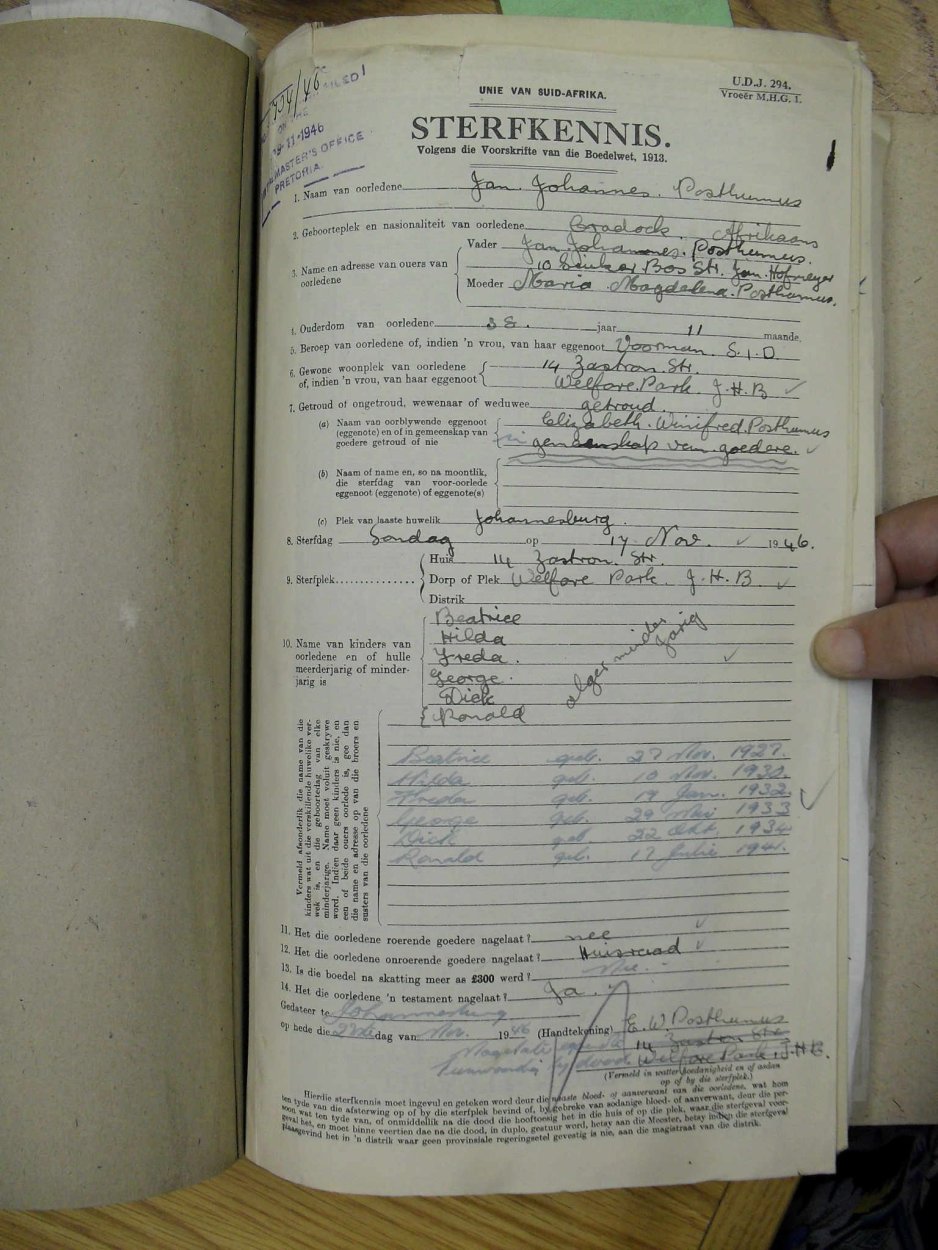 7934/46
19-11-1946
MASTER'S OFFICE
PRETORIA.
U.D.J. 294.
Vroeër M.H.G. 1.
UNIE VAN SUID-AFRIKA.
STERFKENNIS.
Volgens die Voorskrifte van die Boedelwet, 1913.
1. Naam van oorledene Jan Johannes Posthumus
2. Geboorteplek en nasionaliteit van oorledene Cradock Afrikaans
3. Name en adresse van ouers van oorledene
Vader Jan Johannes Posthumus.
10 Bos Str. Jan Hofmeyer
Moeder Maria Magdalena Posthumus.
4. Ouderdom van oorledene 38. jaar 11 maande.
5. Beroep van oorledene of, indien 'n vrou, van haar eggenoot Voorman S.I.D.
6. Gewone woonplek van oorledene of, indien 'n vrou, van haar eggenoot
14 Zastron Str.
Welfare Park J.H.B
7. Getroud of ongetroud, wewenaar of weduwee getroud.
(a) Naam van oorblywende eggenoot (eggenote) en of in gemeenskap van goedere getroud of nie
Elizabeth Winifred Posthumus
in gemeenskap van goedere.
(b) Naam of name en, so na moontlik, die sterfdag van voor-oorlede eggenoot (eggenote) of eggenote(s)
(c) Plek van laaste huwelik Johannesburg.
8. Sterfdag Sondag op 17 Nov. 1946.
9. Sterfplek
Huis 14 Zastron Str.
Dorp of Plek Welfare Park J.H.B
Distrik
10. Name van kinders van oorledene en of hulle meerderjarig of minderjarig is
Beatrice
Hilda
Freda.
George.
Dick
Ronald
minderjarig
Vermeld afsonderlik die name van die kinders wat uit die verskillende huwelike verwek is, en die geboortedag van elke minderjarige. Name moet voluit geskrywe word. Indien daar geen kinders is nie, en een of beide ouers oorlede is, gee dan die name en adresse op van die broers en susters van die oorledene
Beatrice geb. 27 Nov. 1927.
Hilda geb. 10 Nov. 1930.
Freda geb. 19 Jan. 1932
George geb. 29 Mei 1933
Dick geb. 22 Okt. 1934
Ronald geb. 17 Julie 1941.
11. Het die oorledene roerende goedere nagelaat? nee
12. Het die oorledene onroerende goedere nagelaat? Huisraad
13. Is die boedel na skatting meer as £300 werd? Nee.
14. Het die oorledene 'n testament nagelaat? Ja.
Gedateer te Johannesburg
op hede die 22ste dag van Nov. 1946 (Handtekening) E.W. Posthumus
14 Zastron Str.
Welfare Park. J.H.B.
Nagelate eggenote
teenwoordig by dood.
(Vermeld in watter hoedanigheid en of aldan op of by die sterfplek.)
Hierdie sterfkennis moet ingevul en geteken word deur die naaste bloed- of aanverwant van die oorledene, wat hom
ten tyde van die afsterwing op of by die sterfplek bevind of, by gebreke van sodanige bloed- of aanverwant, deur die persoon
wat ten tyde van, of onmiddellik na die dood die hooftoesig het in die huis of op die plek, waar die sterfgeval voorgeval
het, en moet binne veertien dae na die dood, in duplo, gestuur word, hetsy aan die Meester, hetsy indien die sterfgeval
plaasgevind het in 'n distrik waar geen provinsiale regeringsetel gevestig is nie, aan die magistraat van die distrik.